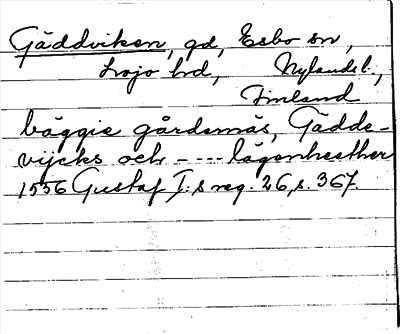 Gäddviken, gd, Esbo sn,
Lojo hd, Nylands l.,
Finland
bäggie gårdsmäs, Gädde-
vijcks och - --- lägenheether
1556 Gustaf I:s reg. 26, s. 367.